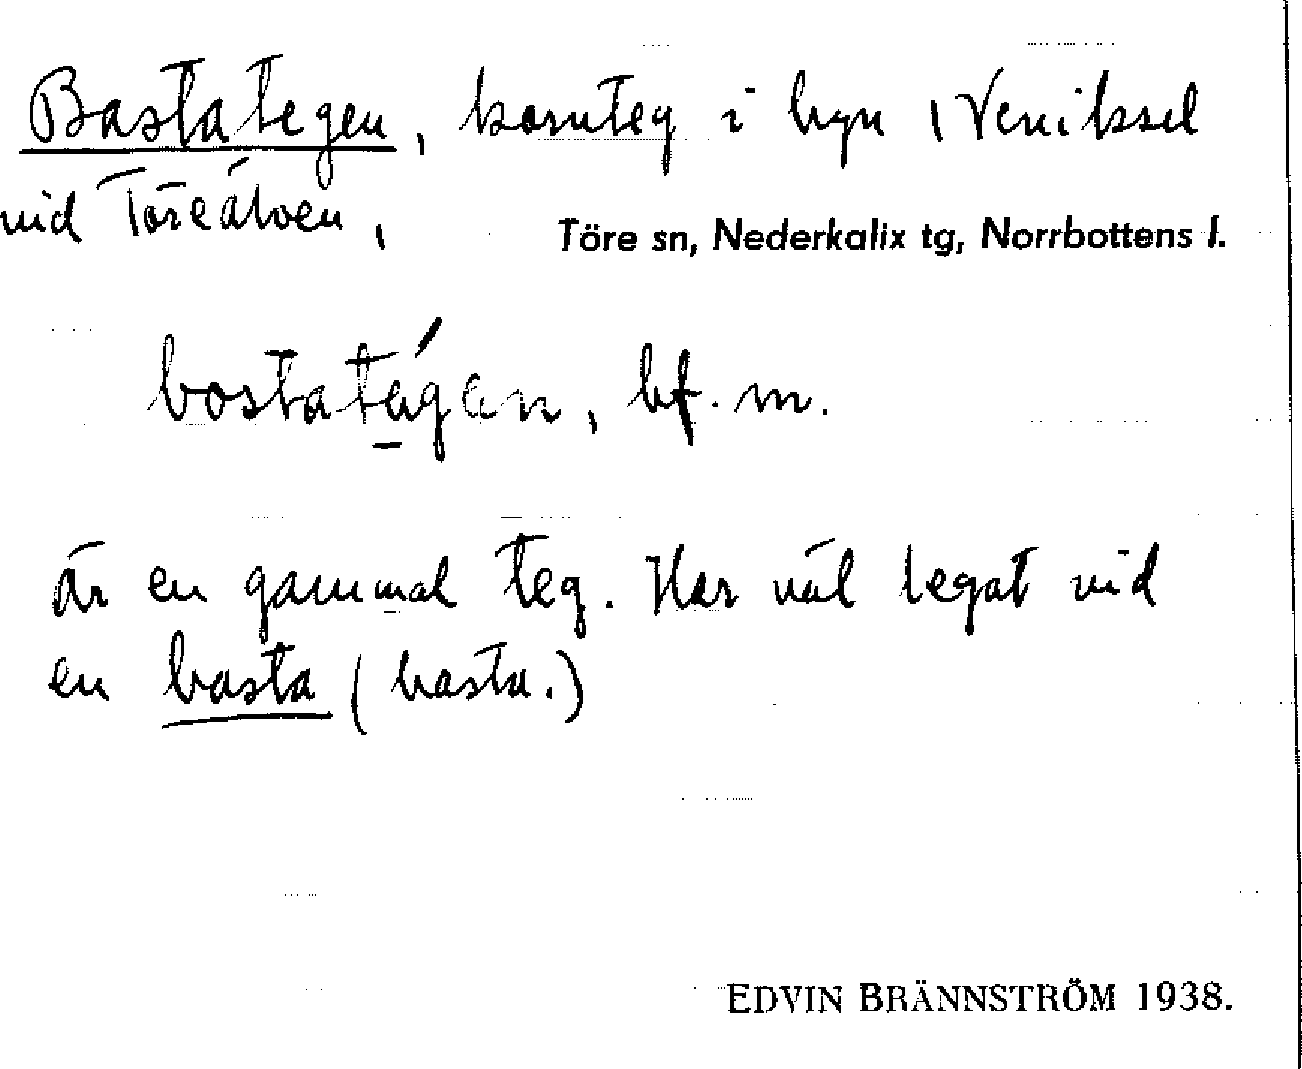 Bastategen, kornteg i byn Veniksel
vid Töreälven,
Töre sn, Nederkalix tg, Norrbottens l.
bostatégan, bf. m.
är en gammal teg. Har väl legat vid
en basta (basta.)
EDVIN BRÄNNSTRÖM 1938.